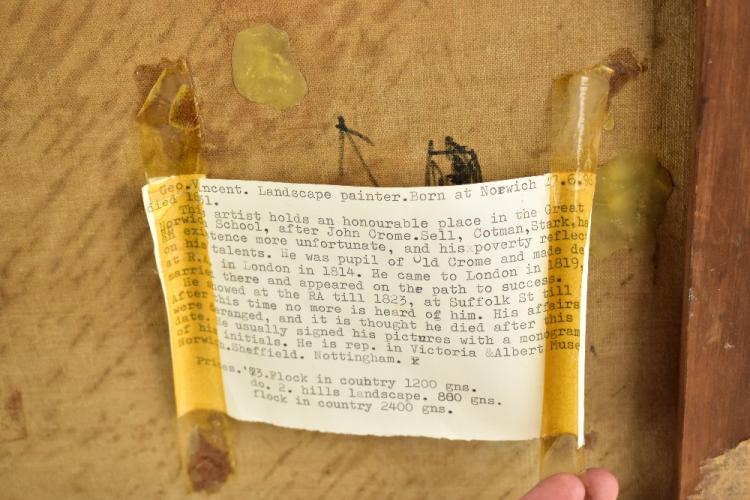 Geo.Vincent. Landscape painter.Born at Norwich 27.6.96
died 1831.
This artist holds an honourable place in the Great
Norwich School, after John Crome.Sell, Cotman,Stark,has
an existence more unfortunate, and his poverty reflec
on his talents. He was pupil of Old Crome and made de
at R.A. in London in 1814. He came to London in 1819,
married there and appeared on the path to success.
He showed at the RA till 1823, at Suffolk St till
After this time no more is heard of him. His affairs
were aranged, and it is thought he died after this
date. He usually signed his pictures with a monogram
of his initials. He is rep. in Victoria &Albert Muse
Norwich.Sheffield. Nottingham.
Prices.'23.Flock in country 1200 gns.
do. 2. hills landscape. 800 gns.
flock in country 2400 gns.